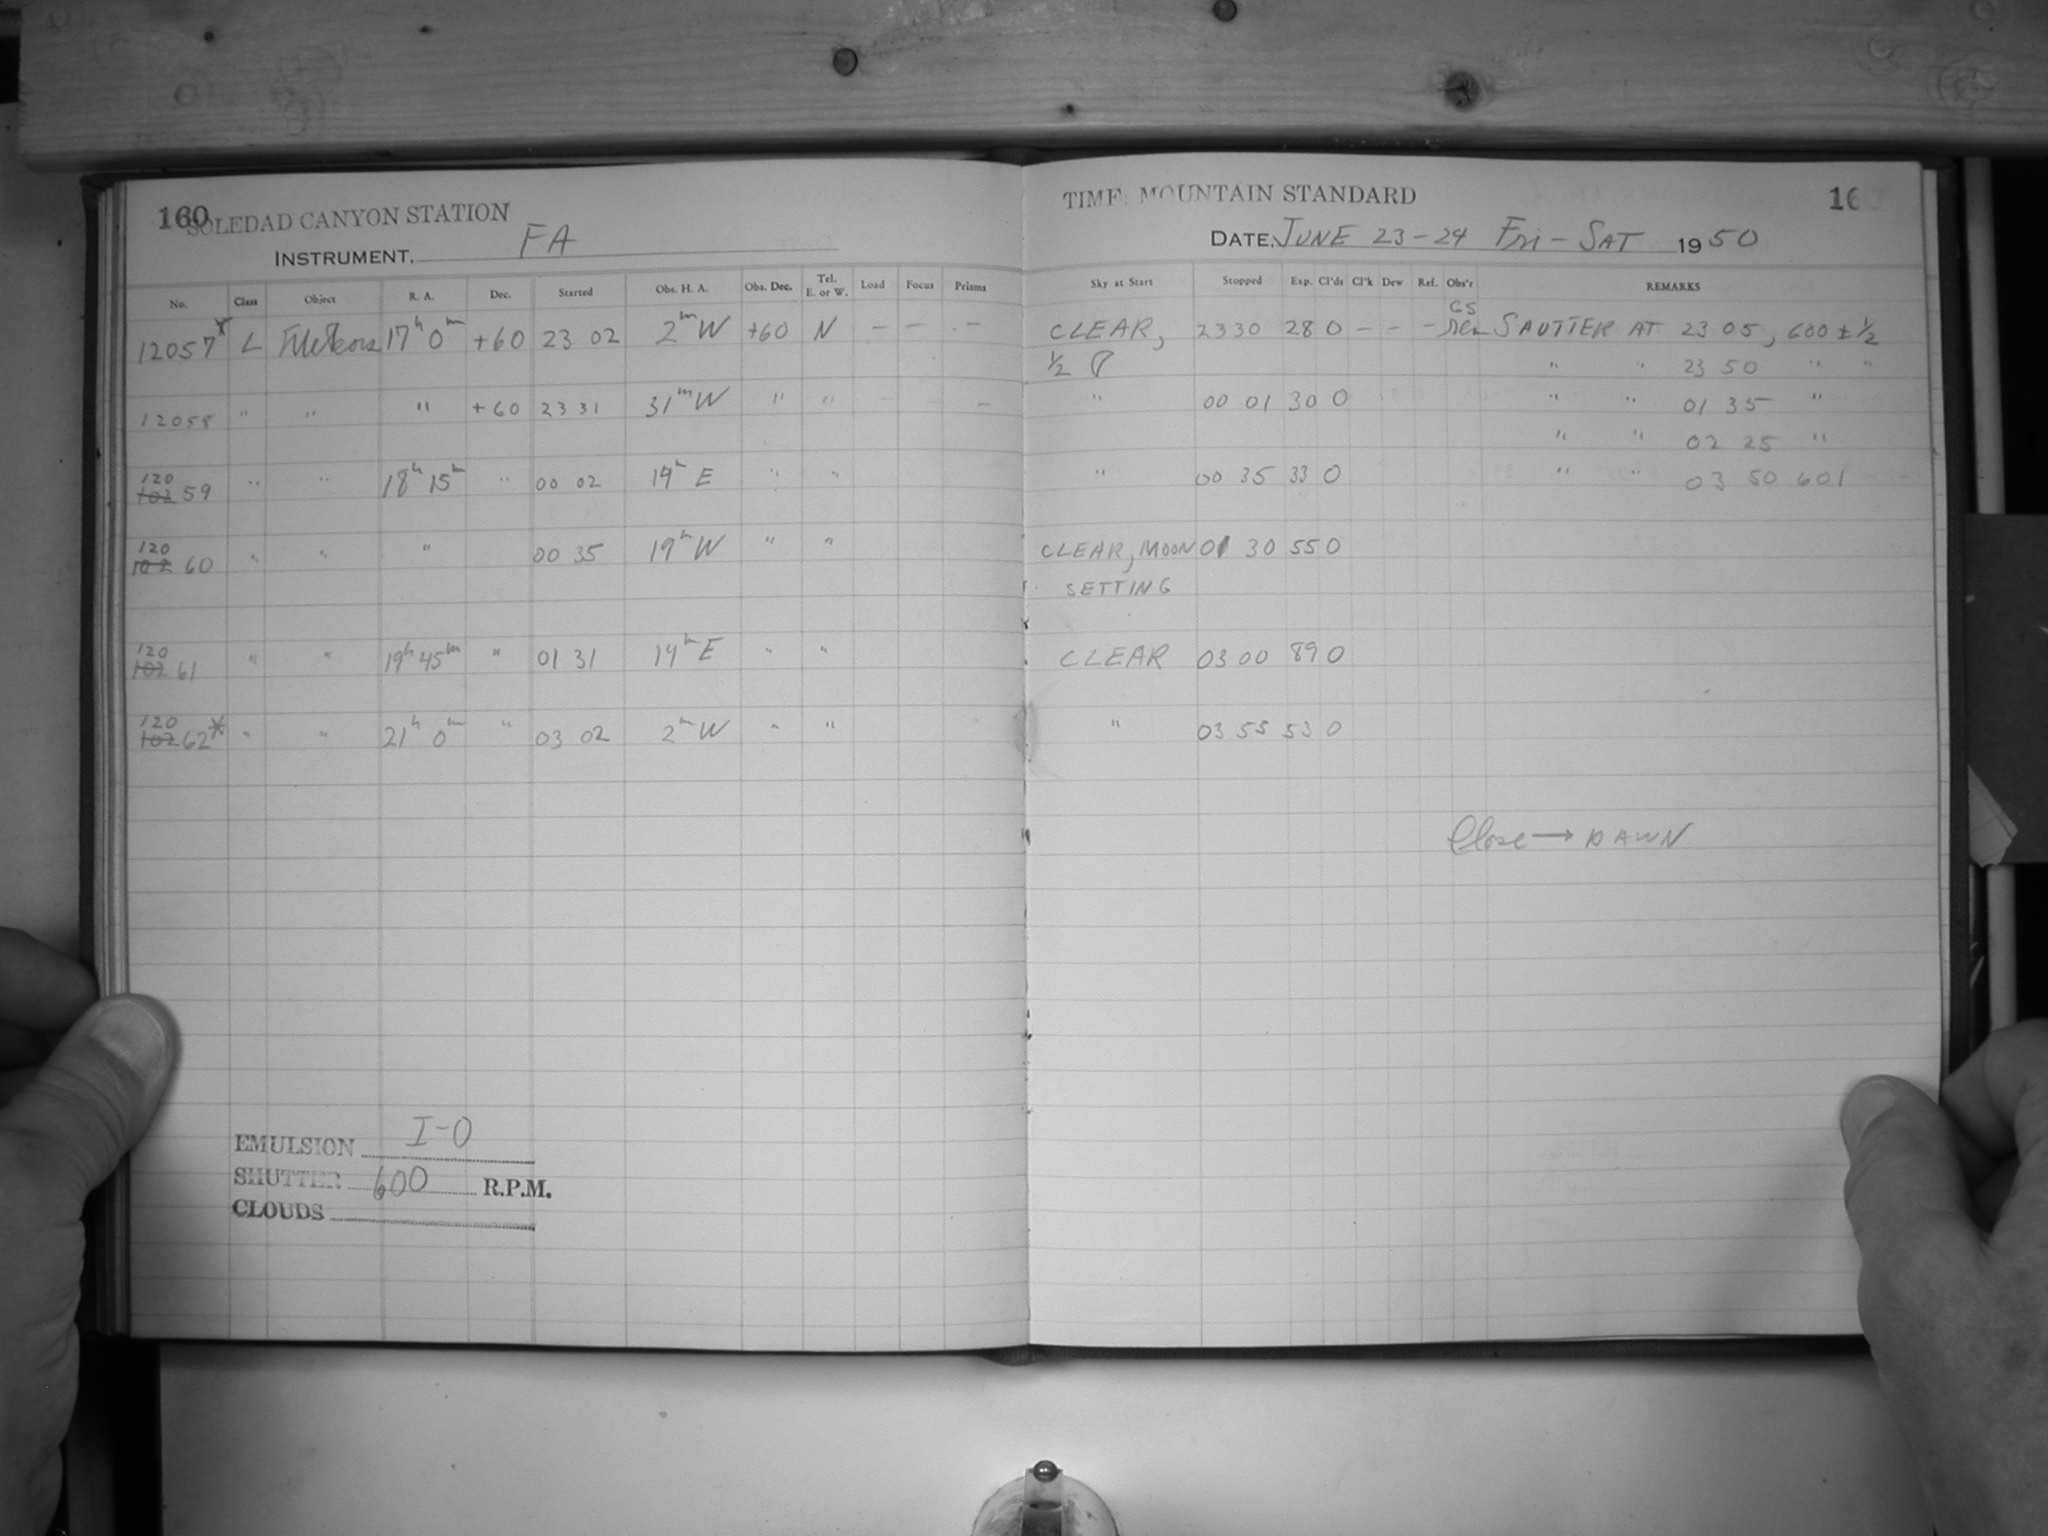 160 SOLEDAD CANYON STATION
INSTRUMENT, FA
No. Class Object R. A. Dec. Started Obs. H. A. Obs. Dec. Tel. E. or W. Load Focus Prisms
12057 L Meteors 17h 0m +60 23 02 2m W +60 N - - -
12058 " " " +60 23 31 31m W " " - -
120 102 59 " " 18h 15m " 00 02 14m E " "
120 102 60 " " " 00 35 19m W " "
120 102 61 " " 19h 45m " 01 31 14m E " "
120 102 62* " " 21h 0m " 03 02 2m W " "
EMULSION I-O
SHUTTER 600 R.P.M.
CLOUDS
TIME: MOUNTAIN STANDARD 16
DATE, JUNE 23-24 Fri - SAT 1950
Sky at Start Stopped Exp. Cl'ds Cl'k Dew Ref. Obs'r REMARKS
CS
CLEAR, 23 30 28 0 - - - SHUTTER AT 23 05, 600 ± 1/2
1/2 " " 23 50 " "
" 00 01 30 0 " " 01 35 "
" " 02 25 "
" 00 35 33 0 " " 03 50 601
CLEAR, MOON 01 30 55 0
SETTING
CLEAR 03 00 89 0
" 03 55 53 0
Close → DAWN